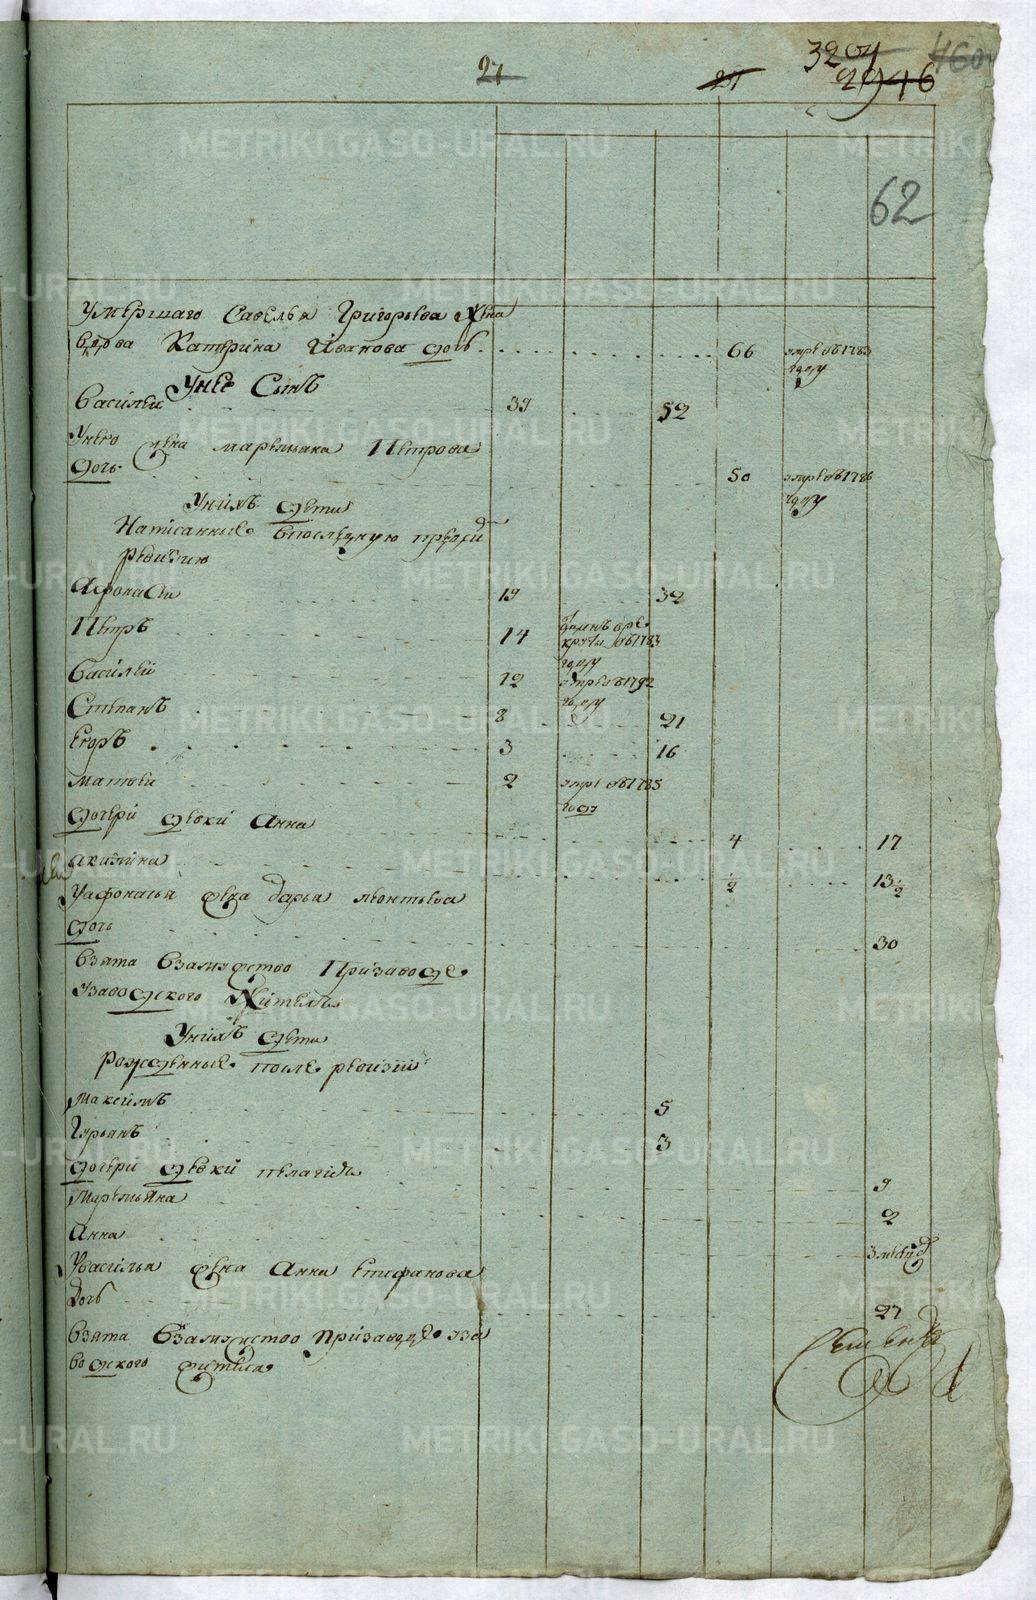 27
27
3204
460
2946
62
умершаго Савелья Григорьева жена
вдова Катерина Иванова дочь 66 умре в 1783
году
У нее сынъ
Василей 39 52
У него жена Маремьяна Петрова
дочь 50 умре в 1786
году
У нихъ дети
Написанные в последную пред сей
ревизию
Афонасей 19 32
Петръ 14 в 1783
году
Василей 12 умре в 1792
году
Степанъ 8 21
Егоръ 3 16
Матвей 2 умре в 1785
году
дочери девки Анна 4 17
Акилина 1/2 13 1/2
У Афонасья жена Дарья Леонтьева
дочь 30
взята в замужство при заводе
заводского жителя
У нихъ дети
рожденные после ревизии
Максимъ 5
Гурьянъ 3
дочери девки Пелагия 9
Маремьяна 2
Анна 3 месяц
У Василья жена Анна Епифанова
дочь 27
взята в замужство при заводе за
водского жителя
METRIKI.GASO-URAL.RU